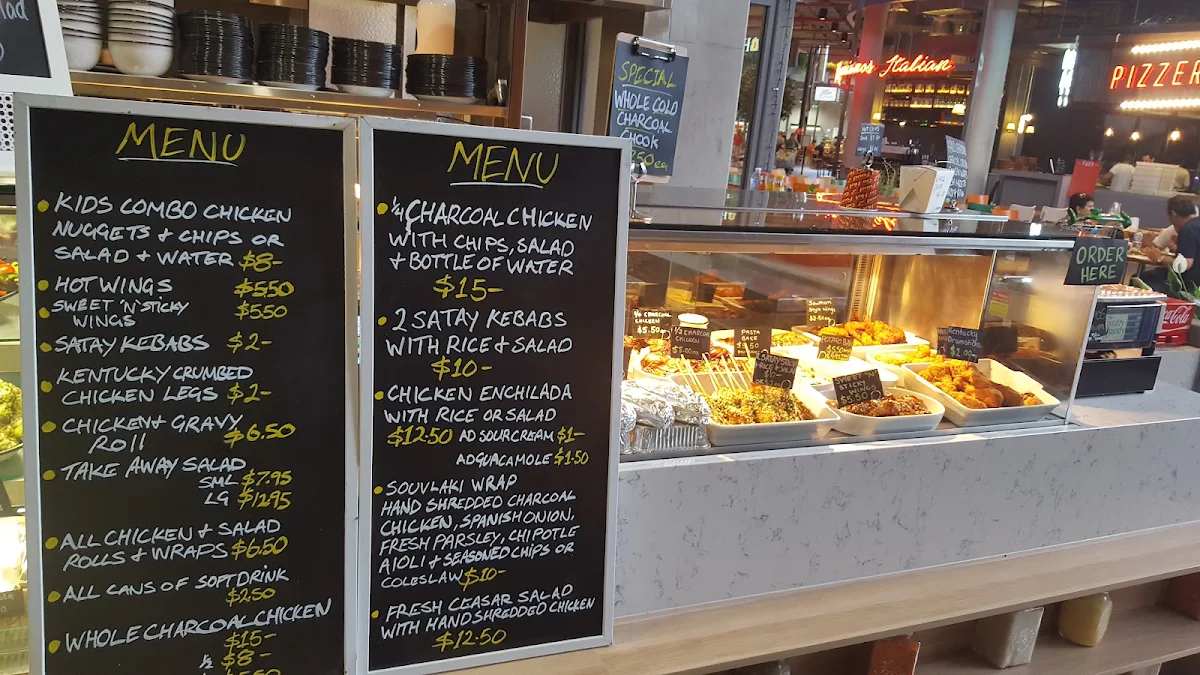 MENU
KIDS COMBO CHICKEN
NUGGETS + CHIPS OR
SALAD + WATER $8-
HOT WINGS $5.50
SWEET 'N' STICKY
WINGS $5.50
SATAY KEBABS $2-
KENTUCKY CRUMBED
CHICKEN LEGS $2-
CHICKEN + GRAVY
ROll $6.50
TAKE AWAY SALAD
SML $7.95
LG $12.95
ALL CHICKEN + SALAD
ROLLS + WRAPS $6.50
ALL CANS OF SOFT DRINK
$2.50
WHOLE CHARCOAL CHICKEN
$15-
1/2 $8-
MENU
1/4 CHARCOAL CHICKEN
WITH CHIPS, SALAD
+ BOTTLE OF WATER
$15-
2 SATAY KEBABS
WITH RICE + SALAD
$10-
CHICKEN ENCHILADA
WITH RICE OR SALAD
$12.50 AD SOUR CREAM $1-
AD GUACAMOLE $1.50
SOUVLAKI WRAP
HAND SHREDDED CHARCOAL
CHICKEN, SPANISH ONION,
FRESH PARSLEY, CHIPOTLE
AIOLI + SEASONED CHIPS OR
COLESLAW $10-
FRESH CEASAR SALAD
WITH HAND SHREDDED CHICKEN
$12.50
SPECIAL
WHOLE COLD
CHARCOAL
CHOOK
Italian
PIZZER
ORDER
HERE
Coca-Cola
1/4 CHARCOAL
CHICKEN
$5.50
1/2 CHARCOAL
CHICKEN
PASTA
BAKE
Kentucky
Drumsticks
$2.00
STICKY
WINGS
$5.50